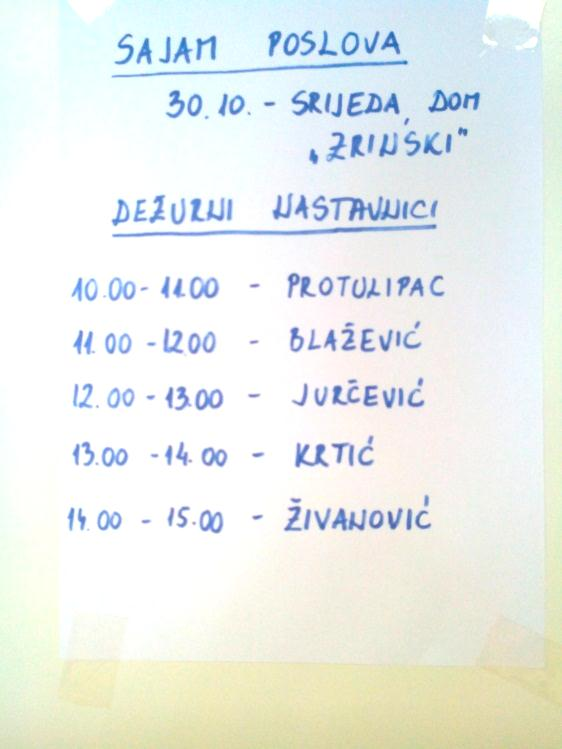 SAJAM POSLOVA
30.10. - SRIJEDA, DOM
„ZRINSKI"
DEŽURNI NASTAVNICI
10.00 - 11.00 - PROTULIPAC
11.00 - 12.00 - BLAŽEVIĆ
12.00 - 13.00 - JURČEVIĆ
13.00 - 14.00 - KRTIĆ
14.00 - 15.00 - ŽIVANOVIĆ